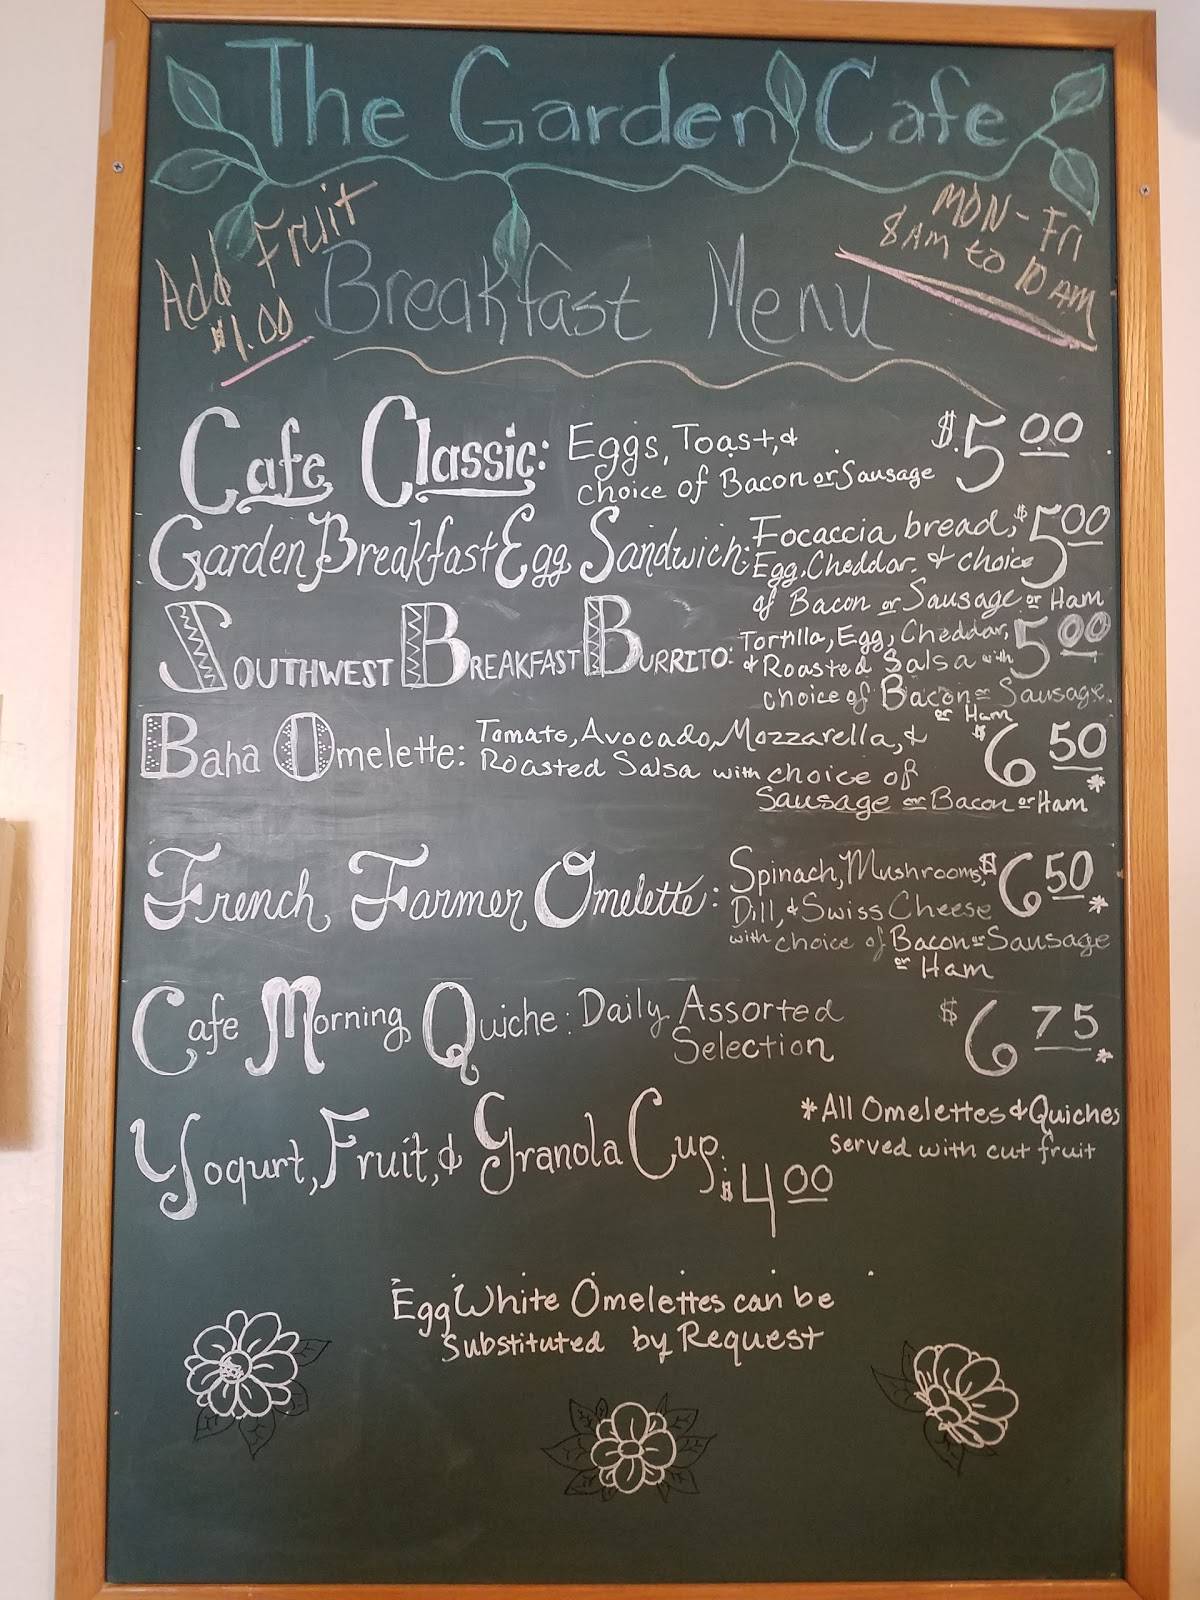 The Garden Cafe
Add Fruit
$1.00
MON - Fri
8 AM to 10 AM
Breakfast Menu
Cafe Classic: Eggs, Toast, &
choice of Bacon or Sausage
$5.00
Garden Breakfast Egg Sandwich: Focaccia bread,
Egg, Cheddar. & choice
of Bacon or Sausage or Ham
$5.00
SOUTHWEST BREAKFAST BURRITO: Tortilla, Egg, Cheddar,
& Roasted Salsa with
choice of Bacon or Sausage
or Ham
5.00
Baha Omelette: Tomato, Avocado, Mozzarella, &
Roasted Salsa with choice of
Sausage or Bacon or Ham
$6.50*
French Farmer Omelette: Spinach, Mushrooms,
Dill, & Swiss Cheese
with choice of Bacon or Sausage
or Ham
$6.50*
Cafe Morning Quiche: Daily Assorted
Selection
$6.75*
Yogurt, Fruit, & Granola Cup.
$4.00
*All Omelettes & Quiches
served with cut fruit
Egg White Omelettes can be
Substituted by Request